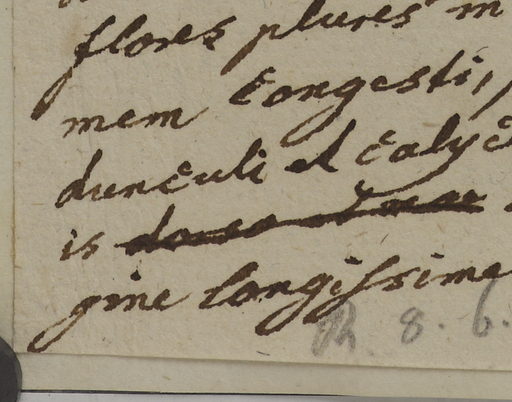 flores plures in
mem congesti,
dunculi et calyc
is
gine longissime
R. 8. 6.